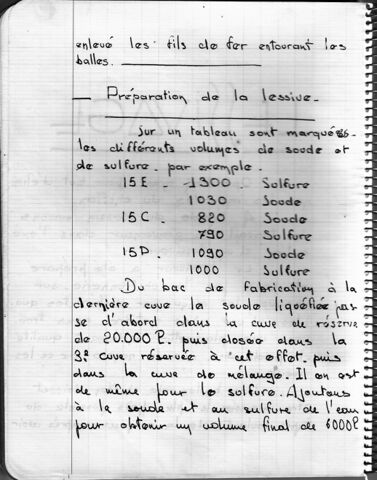 enlevé les fils de fer entourant les
balles.
Préparation de la lessive.
Sur un tableau sont marqués
les différents volumes de soude et
de sulfure. par exemple.
15E - 1300 Sulfure
1030 Soude
15C. 820 Soude
790 Sulfure
15D. 1090 Soude
1000 Sulfure
Du bac de fabrication à la
dernière cuve la soude liquéfiée pas
se d'abord dans la cuve de réserve
de 20.000 l. puis dosée dans la
3e cuve réservée à cet effet. puis
dans la cuve de mélange. Il en est
de même pour le sulfure. Ajoutons
à la soude et au sulfure de l'eau
pour obtenir un volume final de 6000l